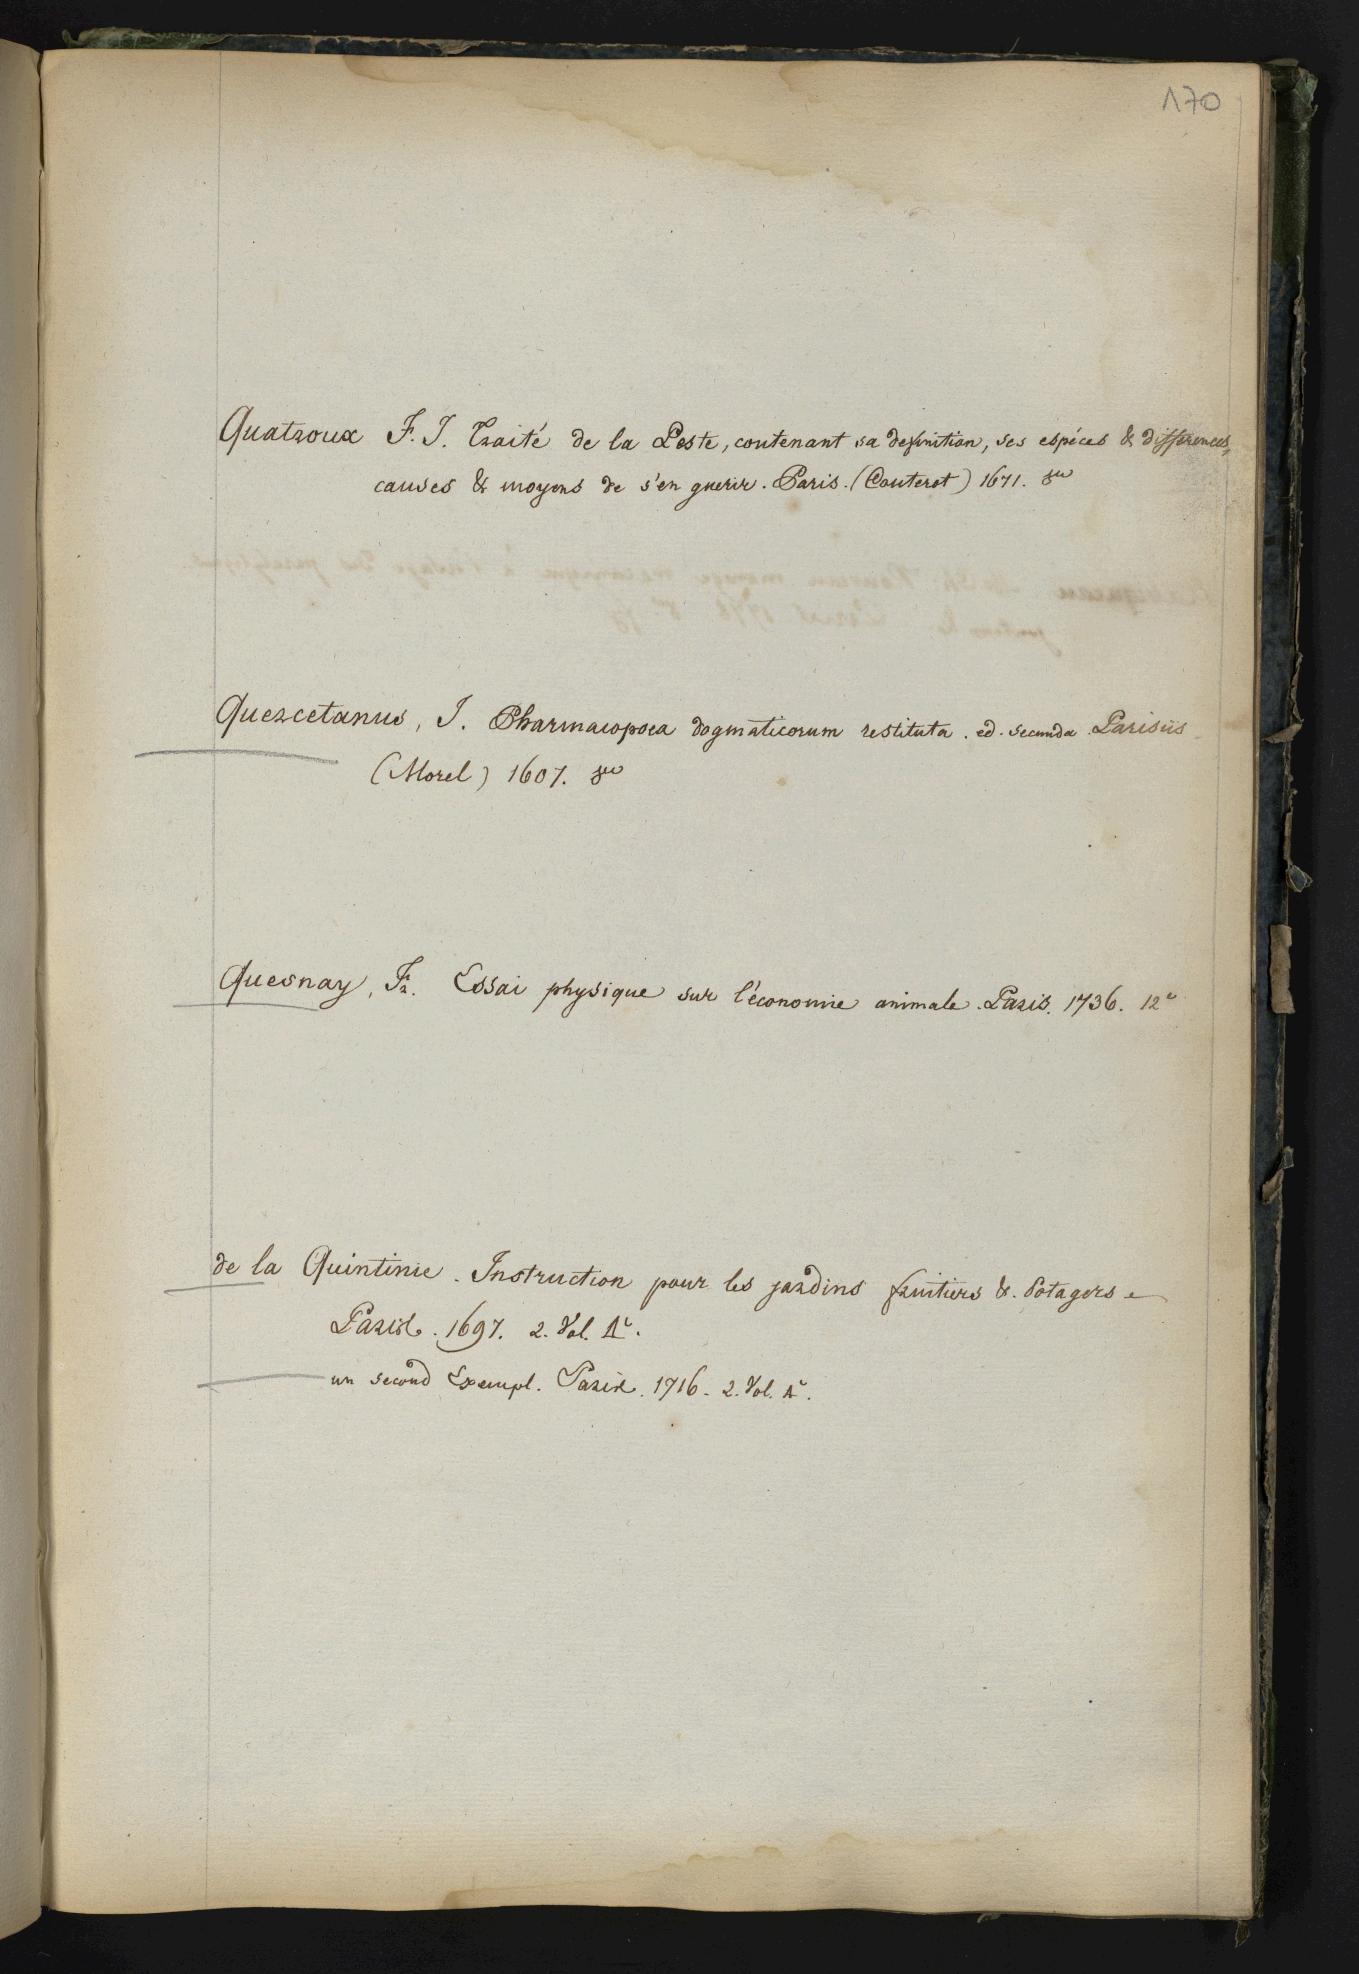 170
Quatroux F. J. Traité de la Peste, contenant sa definition, ses espéces & differences,
causes & moyens de s'en guerir. Paris. (Couterot) 1671. 8vo
Quercetanus, J. Pharmacopoea dogmaticorum restituta. ed. secunda Parisiis
(Morel) 1607. 8vo
Quesnay, Fr. Essai physique sur l'économie animale. Paris. 1736. 12°
de la Quintinie. Instruction pour les jardins fruitiers & Potagers
Paris. 1697. 2. Vol. 4°.
un second Exempl. Paris. 1716. 2. Vol. 4°.